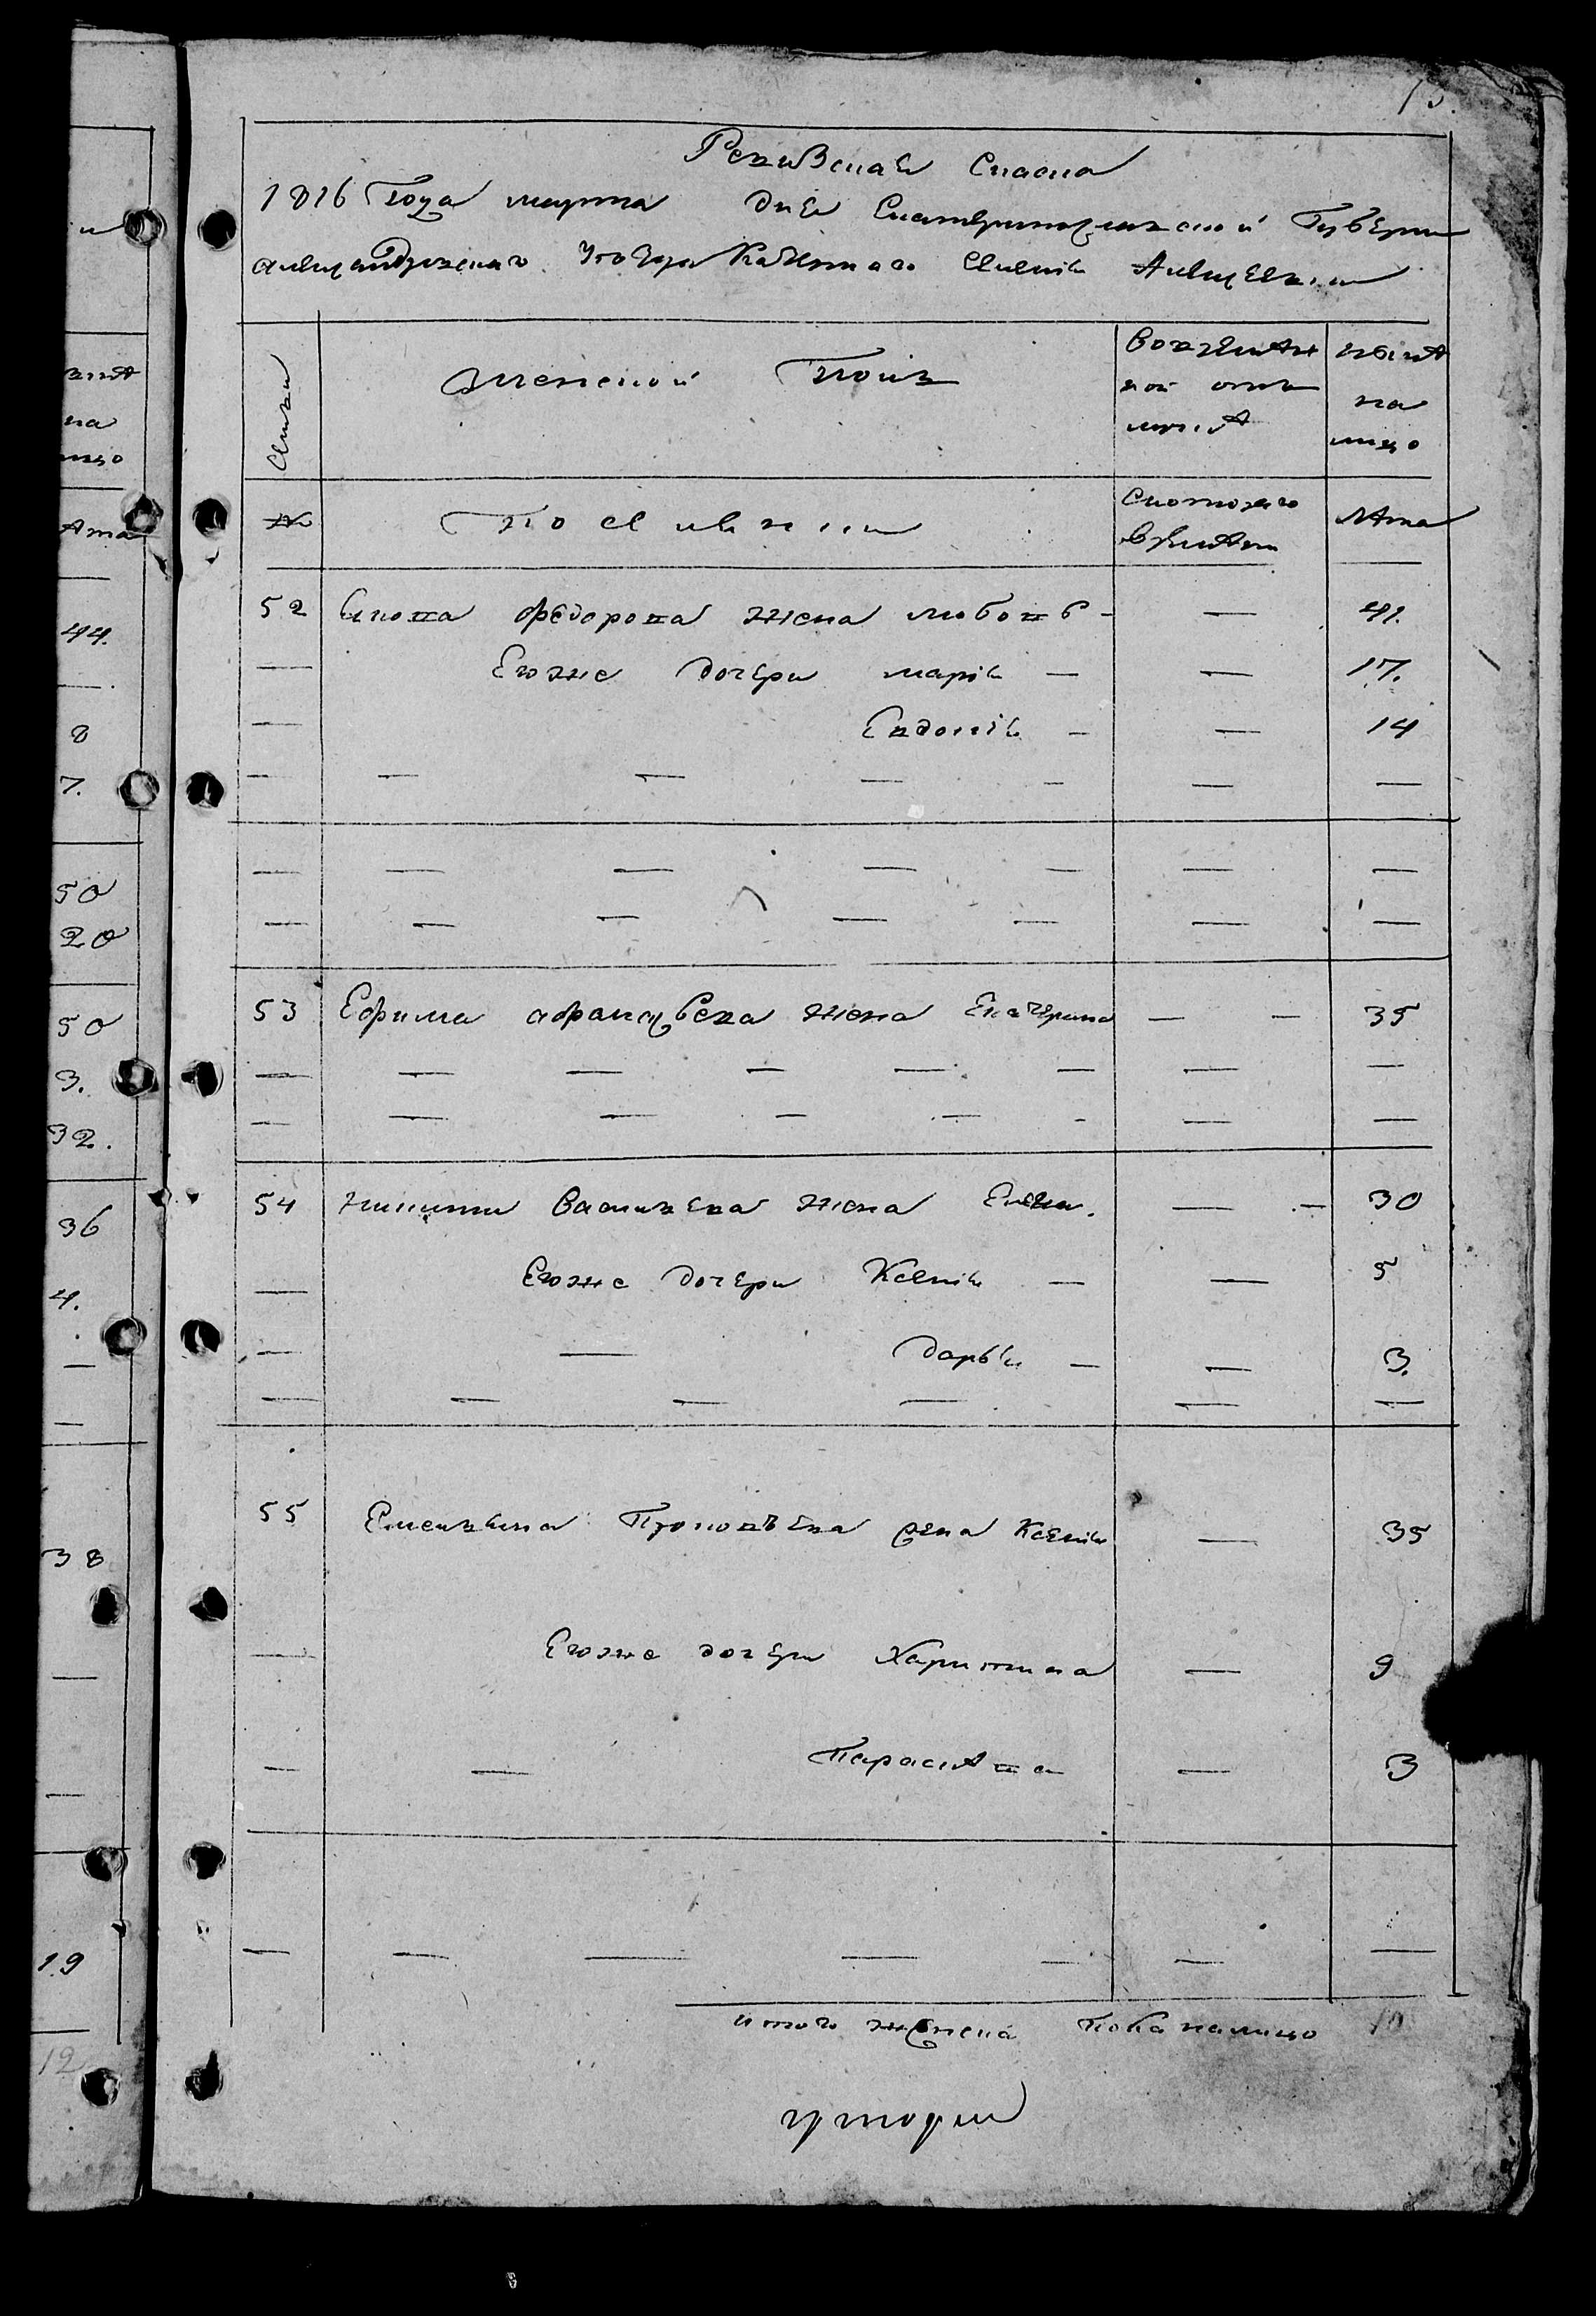 13.
Ревизская Сказка
1816 Года марта дня Екатеринославской Губернии
александровского Уезда Казенного Селения Алексеевки
Семьи
женской Пол
Во временной отлучке
ныне на лицо
№
Поселяне
Скоторого времени
лета
52 Якова федорова жена любовь - — 41.
— Егоже дочери марія — — 17.
— Евдокія - — 14
— — — — - — —
— — — — — — —
— — — — — — —
53 Ефима афанасьева жена Екатерина — - 35
— — — — — — — —
— — — — — - — —
54 никиты Васильева жена Елена. — - 30
— Егоже дочери Ксенія — — 5
— — дарья — — 3.
— — — — — —
55 Емельяна Прокофьева жена Ксенія — 35
— Егоже дочери Харитина — 9
— — Парасковья — 3
— — — — - — —
итого женска пола налицо 10
на
лицо
лета
44.
—
8
7.
50
20
50
3.
32.
36
4.
—
—
38
—
—
19
12